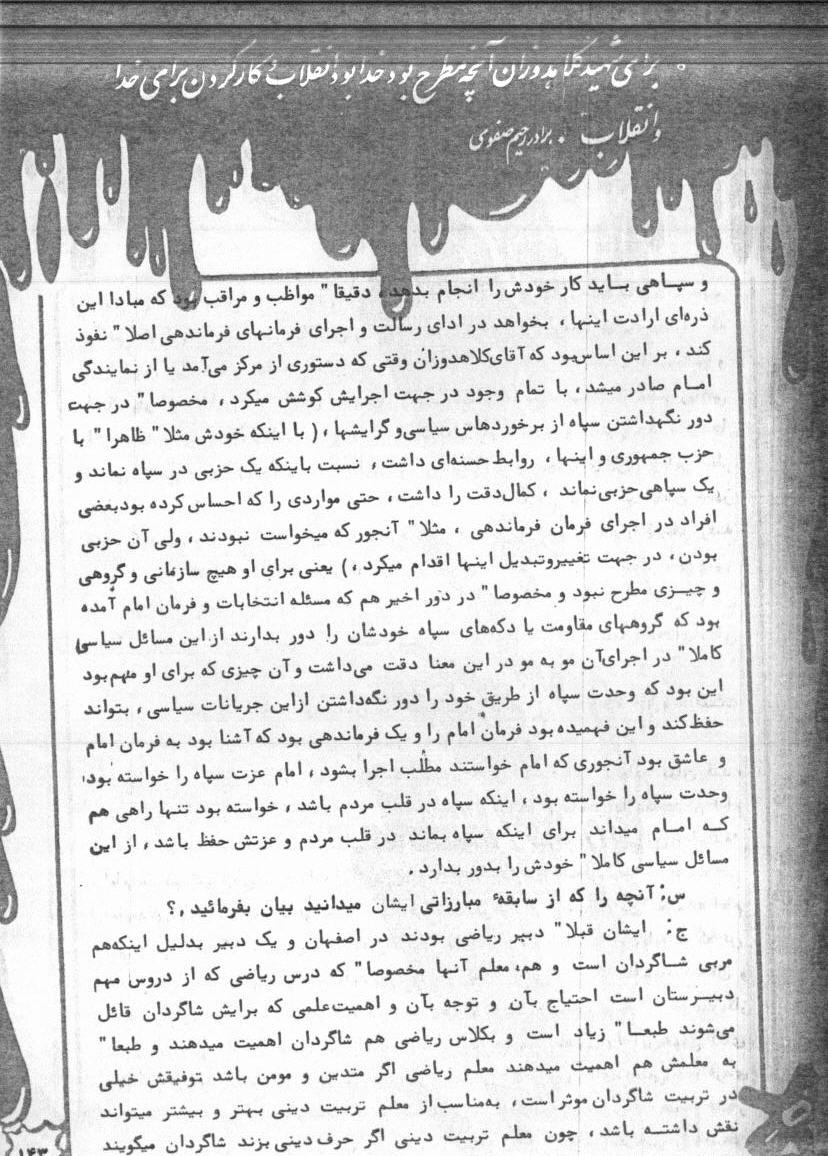 ۰ برای شهید کلاهدوزان آنچه مطرح بود خدا بود انقلاب و کار کردن برای خدا
وانقلاب . برادر رحیم صفوی
و سپاهی باید کار خودش را انجام بدهد، دقیقا" مواظب و مراقب بود که مبادا این
ذره‌ای ارادت اینها، بخواهد در ادای رسالت و اجرای فرمانهای فرماندهی اصلا" نفوذ
کند، بر این اساس‌بود که آقای‌کلاهدوزان وقتی که دستوری از مرکز می‌آمد یا از نمایندگی
امام صادر میشد، با تمام وجود در جهت اجرایش کوشش میکرد، مخصوصا" در جهت
دور نگهداشتن سپاه از برخوردهاس سیاسی‌و گرایشها، ( با اینکه خودش مثلا" ظاهرا" با
حزب جمهوری و اینها، روابط حسنه‌ای داشت، نسبت باینکه یک حزبی در سپاه نماند و
یک سپاهی‌حزبی‌نماند، کمال‌دقت را داشت، حتی مواردی را که احساس کرده بودبعضی
افراد در اجرای فرمان فرماندهی، مثلا" آنجور که میخواست نبودند، ولی آن حزبی
بودن، در جهت تغییروتبدیل اینها اقدام میکرد،) یعنی برای او هیچ سازمانی و گروهی
و چیزی مطرح نبود و مخصوصا" در دور اخیر هم که مسئله انتخابات و فرمان امام آمده
بود که گروههای مقاومت یا دکه‌های سپاه خودشان را دور بدارند از این مسائل سیاسی
کاملا" در اجرای‌آن مو به مو در این معنا دقت می‌داشت و آن چیزی که برای او مهم‌بود
این بود که وحدت سپاه از طریق خود را دور نگه‌داشتن ازاین جریانات سیاسی، بتواند
حفظ‌کند و این فهمیده بود فرمان امام را و یک فرماندهی بود که آشنا بود به فرمان امام
و عاشق بود آنجوری که امام خواستند مطلب اجرا بشود، امام عزت سپاه را خواسته بود،
وحدت سپاه را خواسته بود، اینکه سپاه در قلب مردم باشد، خواسته بود تنها راهی هم
که امام میداند برای اینکه سپاه بماند در قلب مردم و عزتش حفظ باشد، از این
مسائل سیاسی کاملا" خودش را بدور بدارد.
س: آنچه را که از سابقهٔ مبارزاتی ایشان میدانید بیان بفرمائید.؟
ج: ایشان قبلا" دبیر ریاضی بودند در اصفهان و یک دبیر بدلیل اینکه‌هم
مربی شاگردان است و هم، معلم آنها مخصوصا" که درس ریاضی که از دروس مهم
دبیرستان است احتیاج بآن و توجه بآن و اهمیت‌علمی که برایش شاگردان قائل
می‌شوند طبعا" زیاد است و بکلاس ریاضی هم شاگردان اهمیت میدهند و طبعا"
به معلمش هم اهمیت میدهند معلم ریاضی اگر متدین و مومن باشد توفیقش خیلی
در تربیت شاگردان موثر است، به‌مناسب از معلم تربیت دینی بهتر و بیشتر میتواند
نقش داشته باشد، چون معلم تربیت دینی اگر حرف دینی بزند شاگردان میگویند
۱۴۳